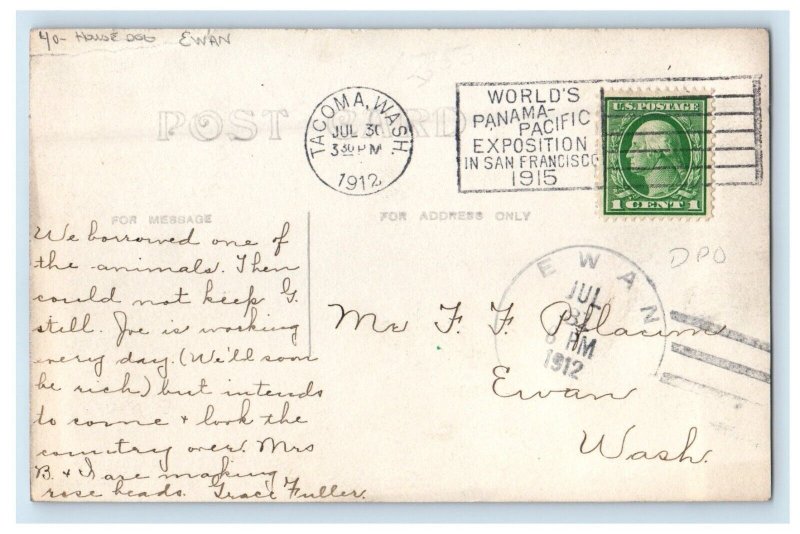 40- HOUSE DOG EWAN
POST CARD
TACOMA, WASH.
JUL 30
3 30 PM
1912
WORLD'S
PANAMA-
PACIFIC
EXPOSITION
IN SAN FRANCISCO
1915
U.S. POSTAGE
1 CENT 1
FOR MESSAGE
FOR ADDRESS ONLY
DPO
EWAN
JUL
31
PM
1912
We borrowed one of
the animals. Then
could not keep G.
still. Joe is working
every day. (We'll soon
be rich) but intends
to come + look the
country over. Mrs
B. + I are making
rose beads. Grace Fuller.
Mr F. F.
Ewan
Wash.